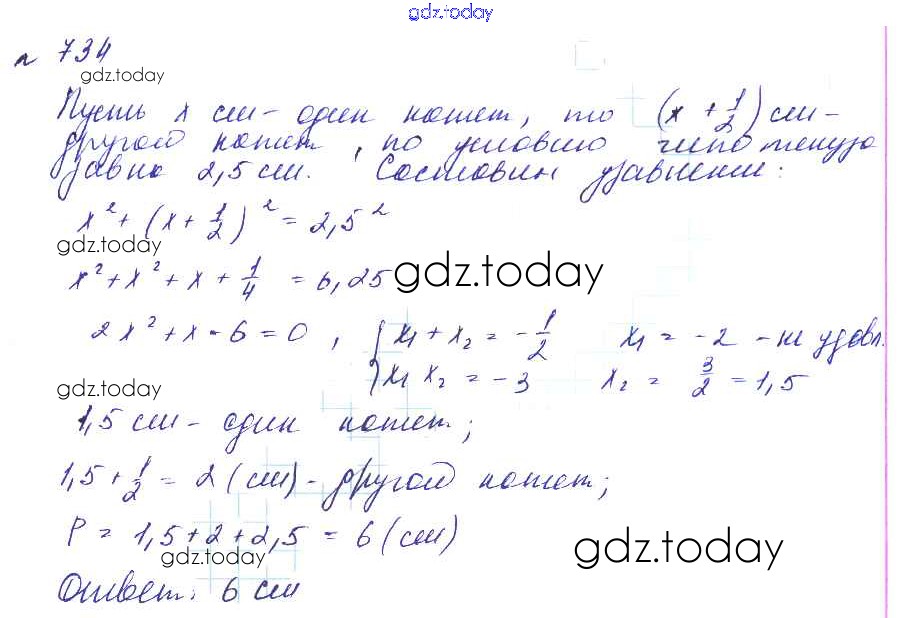 gdz.today
№ 734
gdz.today
Пусть x см - один катет, то (x + 1/2) см -
другой катет, по условию гипотенуза
равна 2,5 см. Составим уравнение:
x² + (x + 1/2)² = 2,5²
gdz.today
x² + x² + x + 1/4 = 6,25
gdz.today
2x² + x - 6 = 0, { x₁ + x₂ = -1/2 x₁ = -2 - не удовл.
x₁ x₂ = -3 x₂ = 3/2 = 1,5
gdz.today
1,5 см - один катет;
1,5 + 1/2 = 2 (см) - другой катет;
P = 1,5 + 2 + 2,5 = 6 (см)
gdz.today
gdz.today
Ответ: 6 см